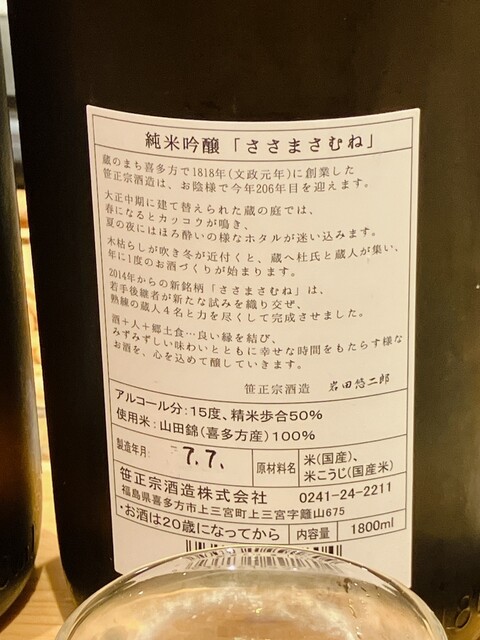 純米吟醸「ささまさむね」
蔵のまち喜多方で1818年(文政元年)に創業した
笹正宗酒造は、お陰様で今年206年目を迎えます。
大正中期に建て替えられた蔵の庭では、
春になるとカッコウが鳴き、
夏の夜にはほろ酔いの様なホタルが迷い込みます。
木枯らしが吹き冬が近付くと、蔵へ杜氏と蔵人が集い、
年に1度のお酒づくりが始まります。
2014年からの新銘柄「ささまさむね」は、
若手後継者が新たな試みを織り交ぜ、
熟練の蔵人4名と力を尽くして完成させました。
酒+人+郷土食…良い縁を結び、
みずみずしい味わいとともに幸せな時間をもたらす様な
お酒を、心を込めて醸していきます。
笹正宗酒造 岩田悠二郎
アルコール分:15度、精米歩合50%
使用米:山田錦(喜多方産)100%
製造年月: 7.7.
原材料名 米(国産)、
米こうじ(国産米)
笹正宗酒造株式会社 0241-24-2211
福島県喜多方市上三宮町上三宮字籬山675
・お酒は20歳になってから 内容量 1800ml